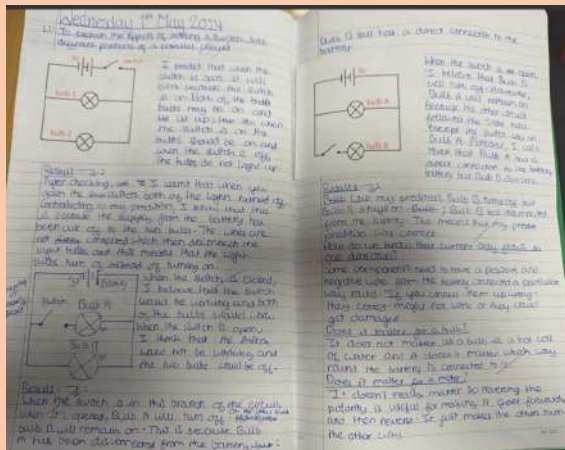 Wednesday 1st May 2024
L.I. To explain the effects of adding a switch into
different positions of a parallel circuit
switch
Bulb 1
Bulb 2
I predict that when the
switch is open it will
because the switch
is on both of the
bulbs may be on and
be lit up, but when
the switch is on the
bulbs should be on and
when the switch is off
the bulbs do not light up.
Result
After checking, I learnt that when you
open the switch both of the lights turned off
Contradicting to my prediction, I know that this
is because the supply from the battery has
been cut off to the two bulbs. The wires are
not connected which then disconnects the
light bulbs and this means that the light
bulbs turn off instead of turning on.
Switch
Bulb A
Bulb B
When the switch is closed
I believe that the switch
would be working and both
of the bulbs would
When the switch is open,
I think that the switch
would not be working and
the two bulbs would be off.
Result
When the switch is in this branch of the circuit
when it's opened, Bulb A will turn off
bulb B will remain on. This is because Bulb
A has been disconnected from the battery but
Bulb B still has a direct connection to the
battery
Bulb A
Bulb B
When the switch is open
I believe that Bulb B
will turn off. However,
Bulb A will remain on
because the other circuit
followed the same rule
except the switch was on
Bulb A. However, I also
think that Bulb A has a
direct connection to the battery
but Bulb B doesn't.
Results
Just like my prediction, Bulb B turns off but
Bulb A stays on. Bulb B was disconnected
from the battery. This means that my
prediction was correct.
How do we know that current only flows in
one direction?
Some components need to have a positive and
negative wire from the battery connected a particular
way round. If you connect them up wrong,
they might not work or they could
get damaged.
Does it matter for a bulb?
It does not matter as a bulb is a hot coil
of and it doesn't matter which way
round the battery is connected to
Does it matter for a motor?
It doesn't really matter so reversing the
polarity is useful for making it go forward
and then reverse. It just makes the other turn
the other way.